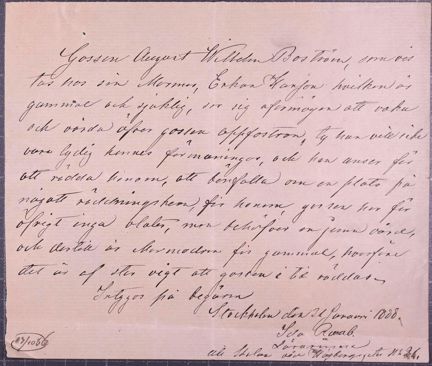 Gossen August Wilhelm Boström, som vis
tas hos sin Mormor, Enkan Hanson hvilken är
gammal och sjuklig, ser sig oförmögen att vaka
och vårda öfver gossens uppfostran, ty han vill icke
vara lydig hennes förmaningar, och hon anser för
att rädda honom, att bönfalla om en plats på
något räddningshem, för honom, gossen har för
öfrigt inga later, men behöfver en jemn vård,
och dertill är Mormodern för gammal, hvarföre
det är af stor vigt att gossen i tid räddas.
Intygas på begäran
Stockholm den 21 Januari 1888.
Lärarinna
att Skolan vid